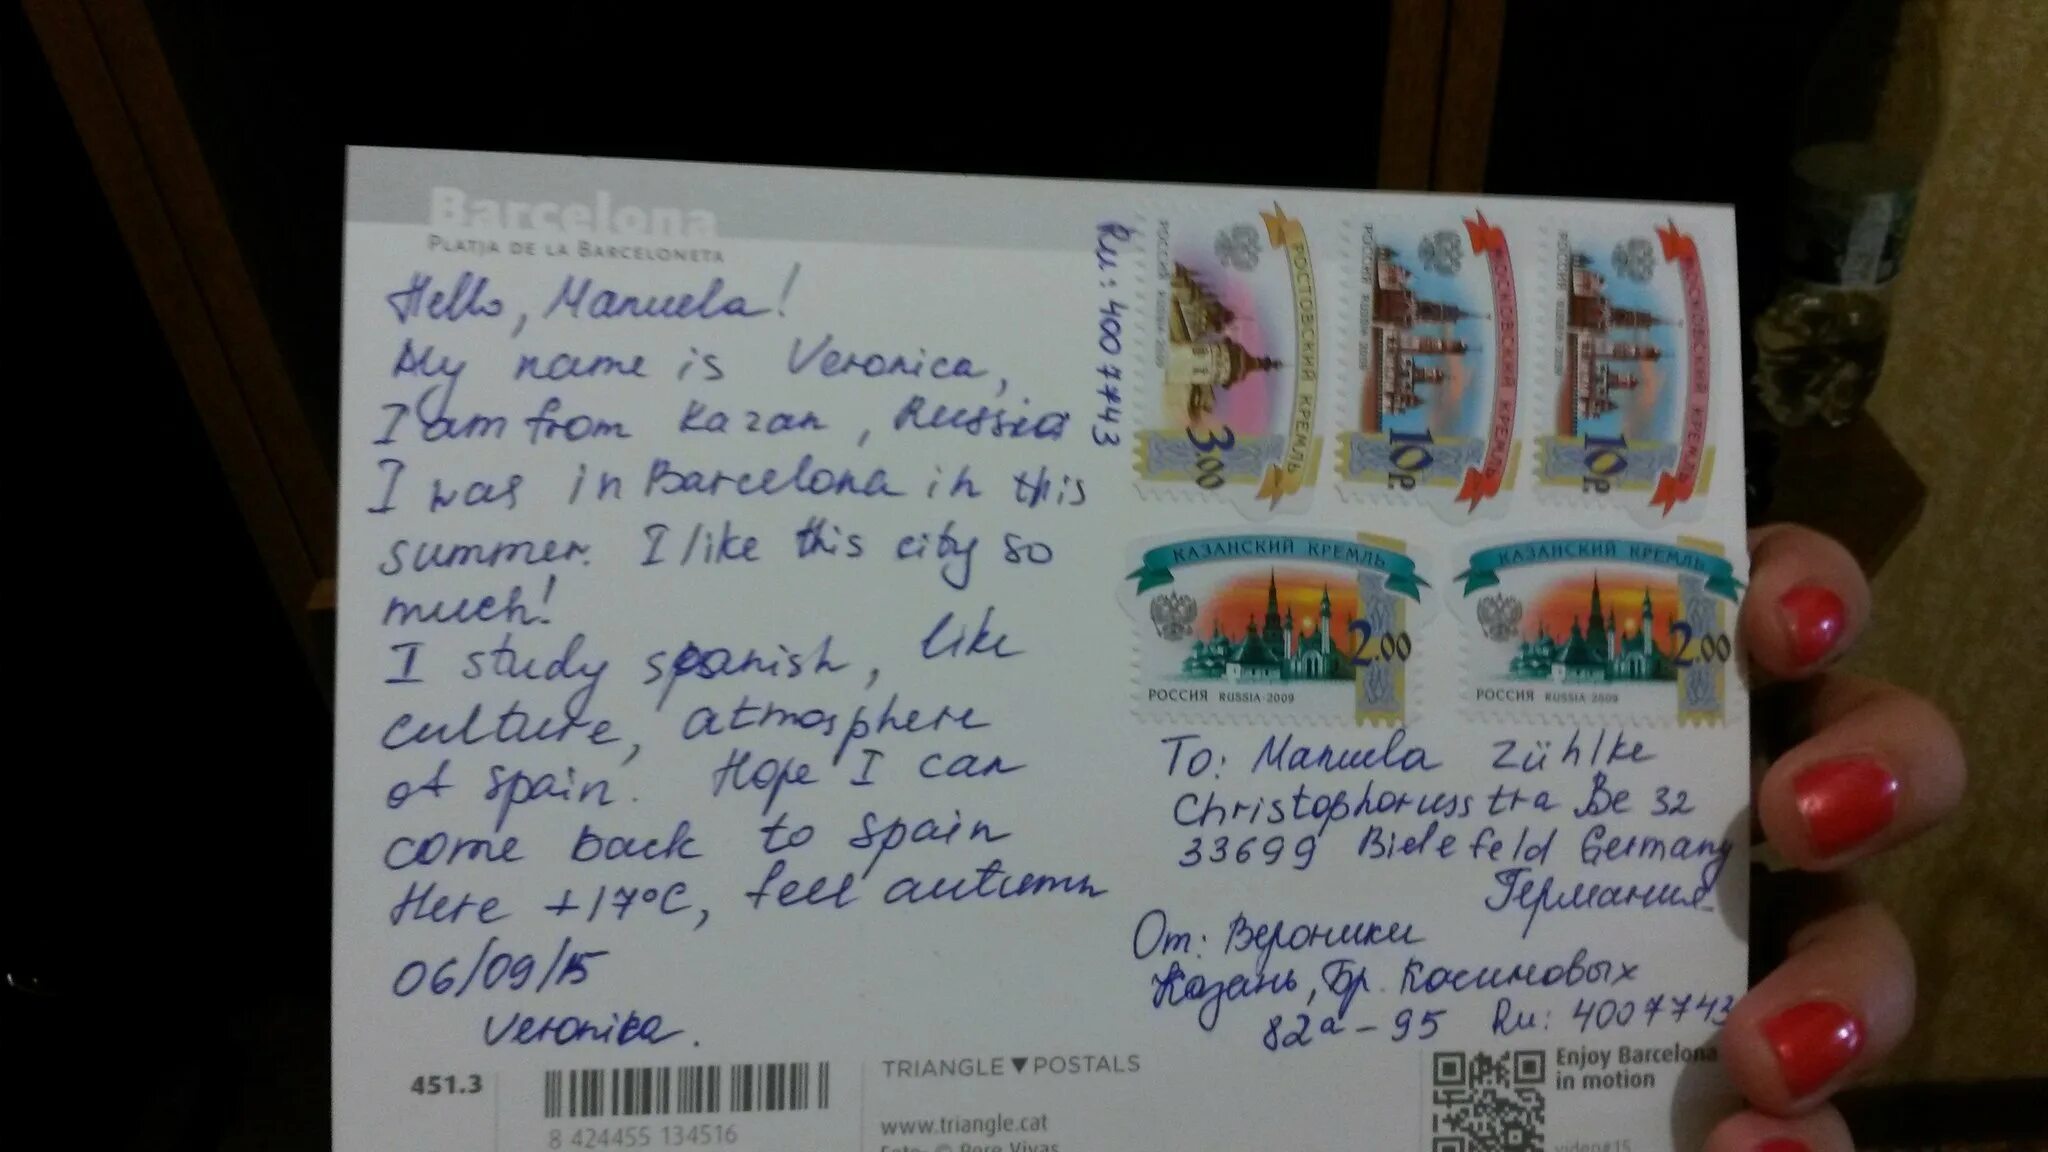 Barcelona
PLATJA DE LA BARCELONETA
Hello, Manuela!
My name is Veronica,
I am from Kazan, Russia
I was in Barcelona in this
summer. I like this city so
much!
I study spanish, like
culture, atmosphere
of Spain. Hope I can
come back to Spain
Here +17°C, feel autumn
06/09/15
Veronika.
Ru: 4007743
РОССИЯ RUSSIA 2009
РОСТОВСКИЙ КРЕМЛЬ
3.00
РОССИЯ RUSSIA 2009
МОСКОВСКИЙ КРЕМЛЬ
10р.
РОССИЯ RUSSIA 2009
МОСКОВСКИЙ КРЕМЛЬ
10р.
КАЗАНСКИЙ КРЕМЛЬ
2.00
РОССИЯ RUSSIA 2009
КАЗАНСКИЙ КРЕМЛЬ
2.00
РОССИЯ RUSSIA 2009
To: Manuela Zühlke
Christophorusstra Be 32
33699 Bielefeld Germany
Германия
От: Вероники
Казань, Бр. Касимовых
82а-95 Ru: 4007743
451.3
8 424455 134516
TRIANGLE▼POSTALS
www.triangle.cat
Foto: © Pere Vivas
Enjoy Barcelona
in motion